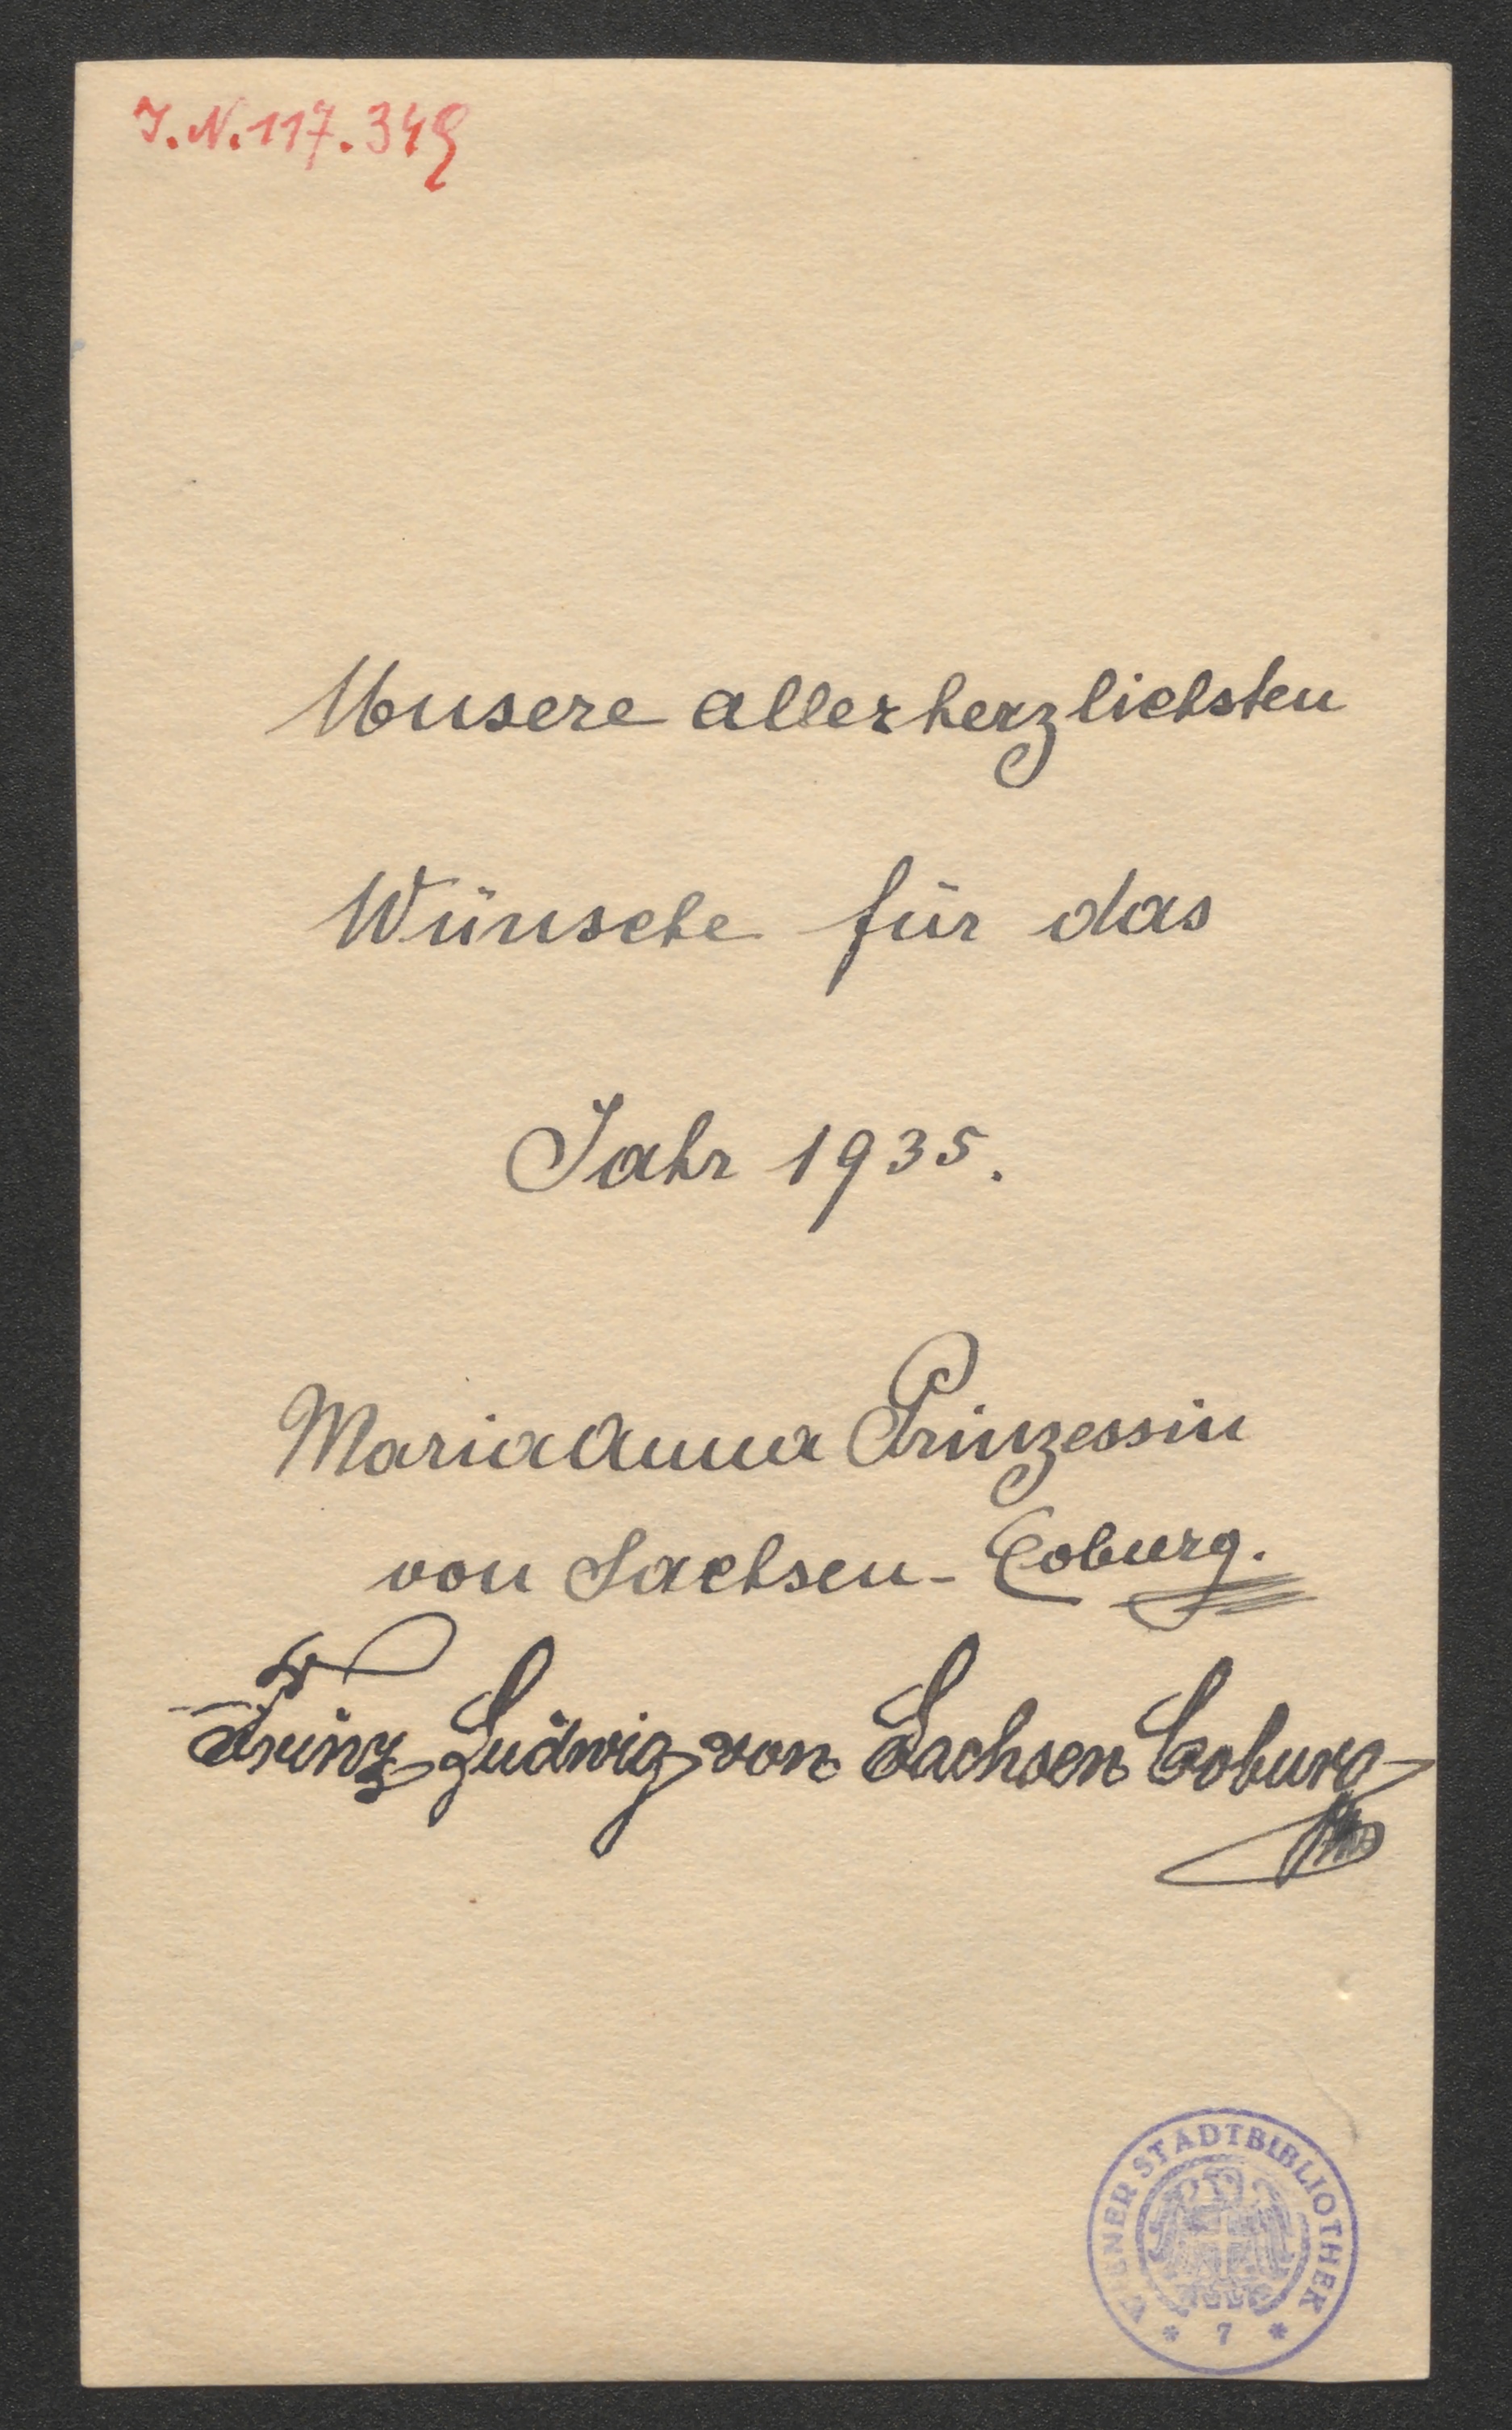 I.N.117.349
Unsere allerherzlichsten
Wünsche für das
Jahr 1935.
Maria Anna Prinzessin
von Sachsen-Coburg.
Prinz Ludwig von Sachsen Coburg
WIENER STADTBIBLIOTHEK
* 7 *